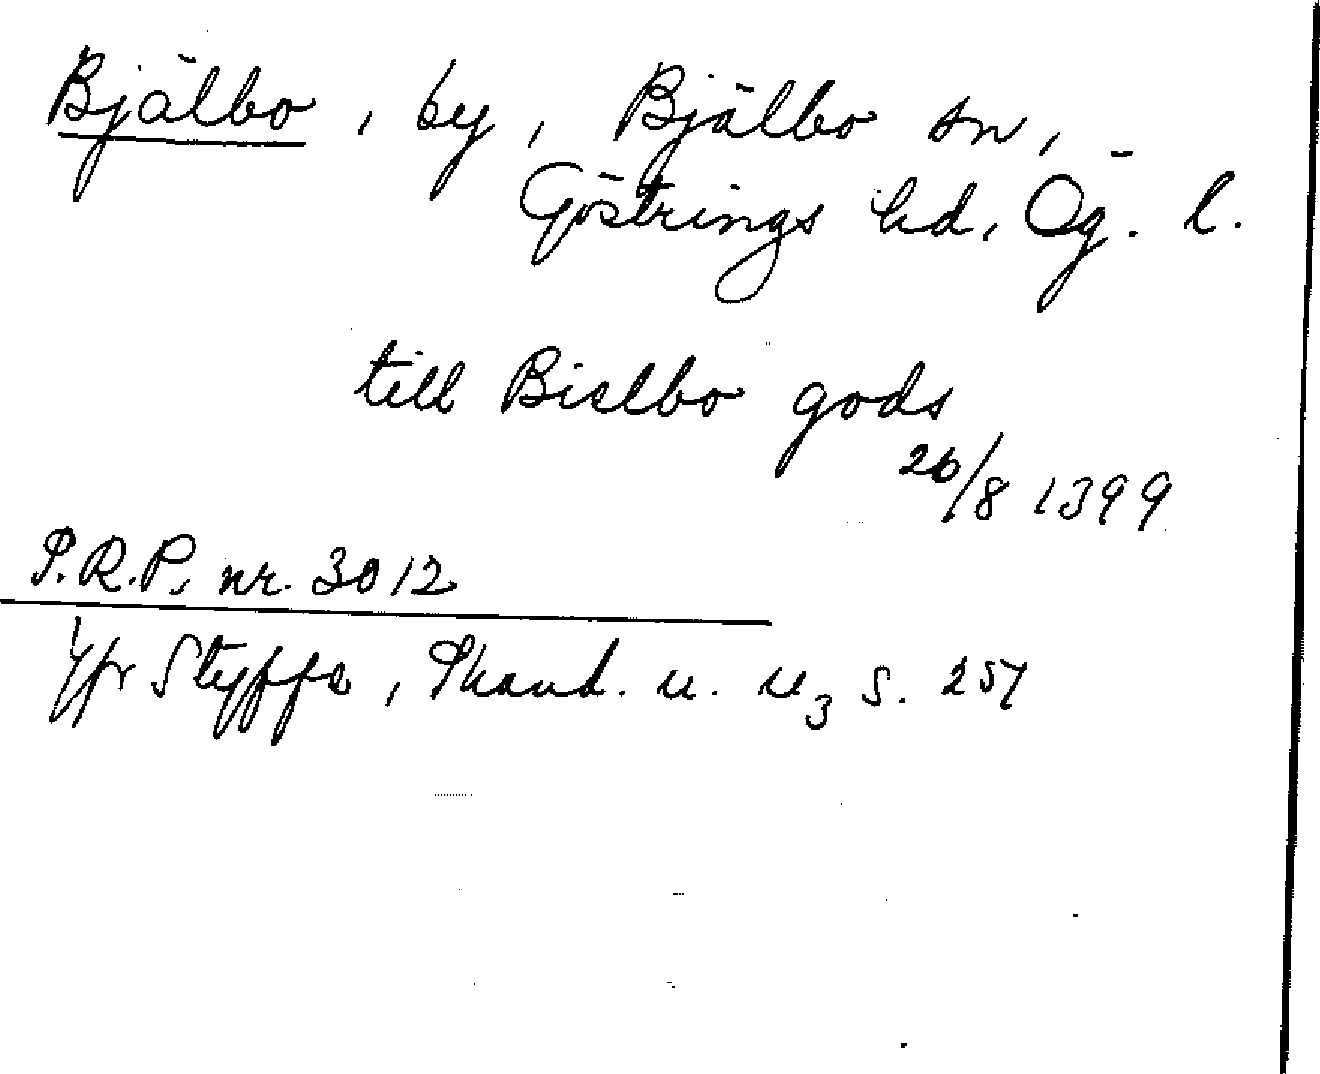 Bjälbo, by, Bjälbo sn,
Göstrings hd, Ög. l.
till Bielbo gods
26/8 1399
S.R.P. nr. 3012
Jfr Styffe, Skand. u. u3 s. 257